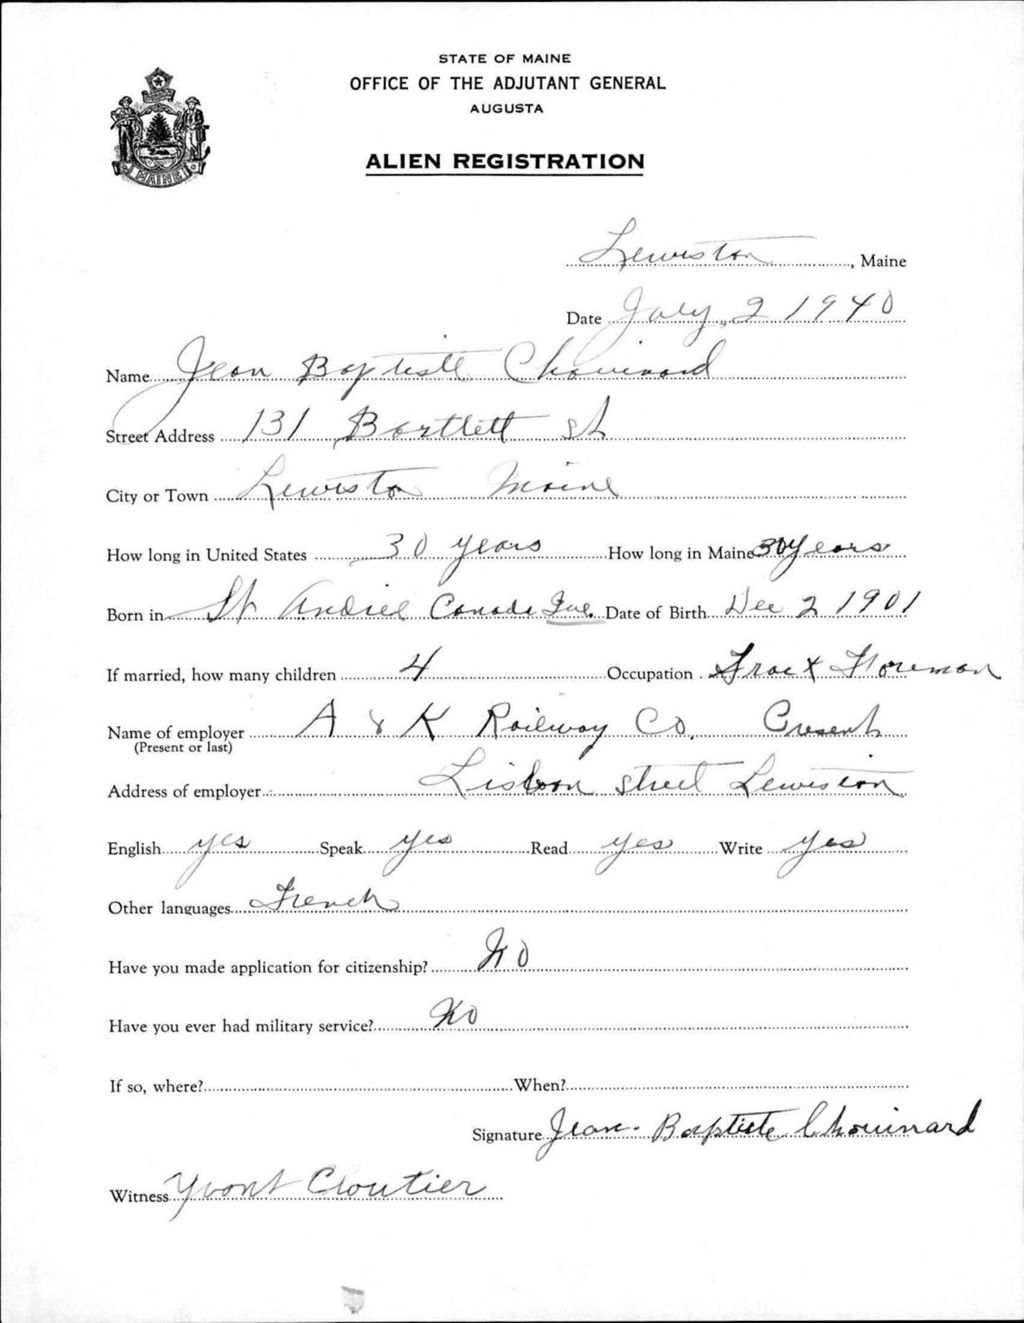 STATE OF MAINE
OFFICE OF THE ADJUTANT GENERAL
AUGUSTA
ALIEN REGISTRATION
MAINE
Lewiston, Maine
Date July 2 1940
Name Jean Baptiste Chouinard
Street Address 131 Bartlett St
City or Town Lewiston Maine
How long in United States 30 years How long in Maine 30 years
Born in St Andrée Canada Que. Date of Birth Dec 2 1901
If married, how many children 4 Occupation Tract Foreman
Name of employer A & K Railway Co. Present
(Present or last)
Address of employer Lisbon Street Lewiston
English yes Speak yes Read yes Write yes
Other languages French
Have you made application for citizenship? No
Have you ever had military service? No
If so, where? When?
Signature Jean-Baptiste Chouinard
Witness Yvont Cloutier